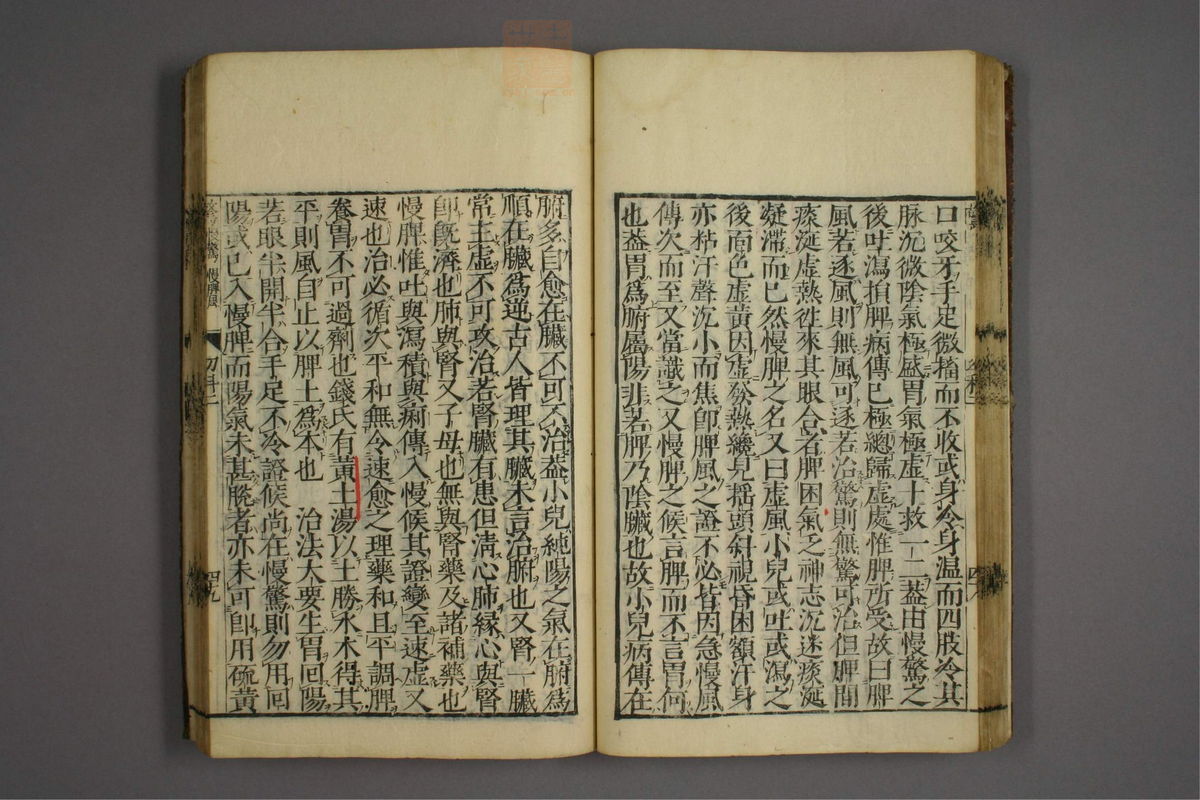 口咬牙手足微搐而不收或身冷身温而四肢冷其
脉沉微陰氣極盛胃氣極虛十救一二蓋由慢驚之
後吐瀉損脾病傳已極總歸虛處惟脾所受故曰脾
風若逐風則無風可逐若治驚則無驚可治但脾間
痰涎虛熱徃來其眼合者脾困氣乏神志沉迷痰涎
凝滯而已然慢脾之名又曰虛風小兒或吐或瀉之
後面色虛黄因虛發熱纔見揺頭斜視昏困額汗身
亦粘汗聲沉小而焦卽脾風之證不必皆因急慢風
傳次而至又當識之又慢脾之候言脾而不言胃何
也葢胃爲腑屬陽非若脾乃陰臓也故小兒病傳在
腑多自愈在臓不可不治葢小兒純陽之氣在腑爲
順在臓爲逆古人皆理其臓未言治腑也又腎一臓
常主虛不可攻治若腎臓有患但淸心肺縁心與腎
卽旣濟也肺與腎又子母也無與腎藥及諸補藥也
慢脾惟吐與瀉積與痢傳入慢候其證變至速虛又
速也治必循次平和無令速愈之理藥和且平調脾
養胃不可過劑也錢氏有黄土湯以土勝水木得其
平則風自止以脾土爲本也　治法大要生胃回陽
若眼半開半合手足不冷證候尚在慢驚則勿用回
陽或已入慢脾而陽氣未甚脫者亦未可卽用硫黄
慢脾風
四九